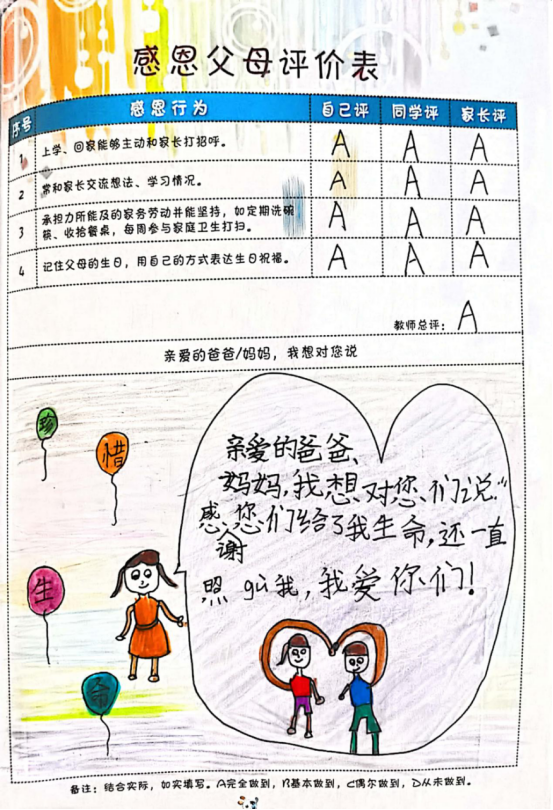 感恩父母评价表
序号 感恩行为 自己评 同学评 家长评
1 上学、回家能够主动和家长打招呼。 A A A
2 常和家长交流想法、学习情况。 A A A
3 承担力所能及的家务劳动并能坚持，如定期洗碗
筷、收拾餐桌，每周参与家庭卫生打扫。 A A A
4 记住父母的生日，用自己的方式表达生日祝福。 A A A
教师总评： A
亲爱的爸爸/妈妈，我想对您说
珍
惜
生
命
亲爱的爸爸、
妈妈，我想对您们说：“
感谢您们给了我生命，还一直
照gù我，我爱你们！
备注：结合实际，如实填写。A完全做到，B基本做到，C偶尔做到，D从未做到。